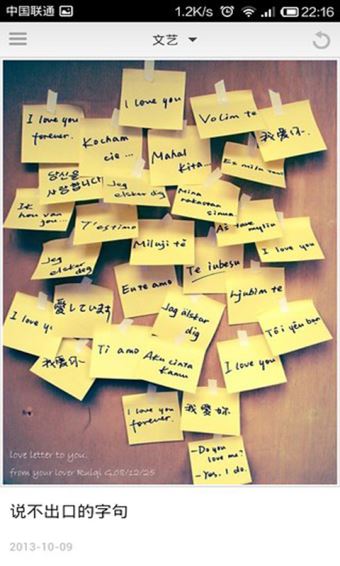 中国联通
1.2K/s
22:16
文艺
I love you
I love you
forever.
Volim te
我爱你.
Kocham
cie ...
Mahal
kita...
Es milu tevi
당신을
사랑합니다
Jeg
elsker dig
Mina
rakastan
sinua
Ik
hou van
jou...
T'estimo
Aš tave
myliu
Jeg
elsker
deg
Miluji tě
I love you
Te iubesu
Eu te amo
Ljubim te
愛しています
Jag älskar
dig
I love
Tôi yêu bạn
我爱你
Ti amo
Aku cinta
kamu
I love you
I love you
forever.
我爱妳
-Do you
love me?
-Yes, I do.
love letter to you.
from your lover Ruiqi G.08/12/25
说不出口的字句
2013-10-09